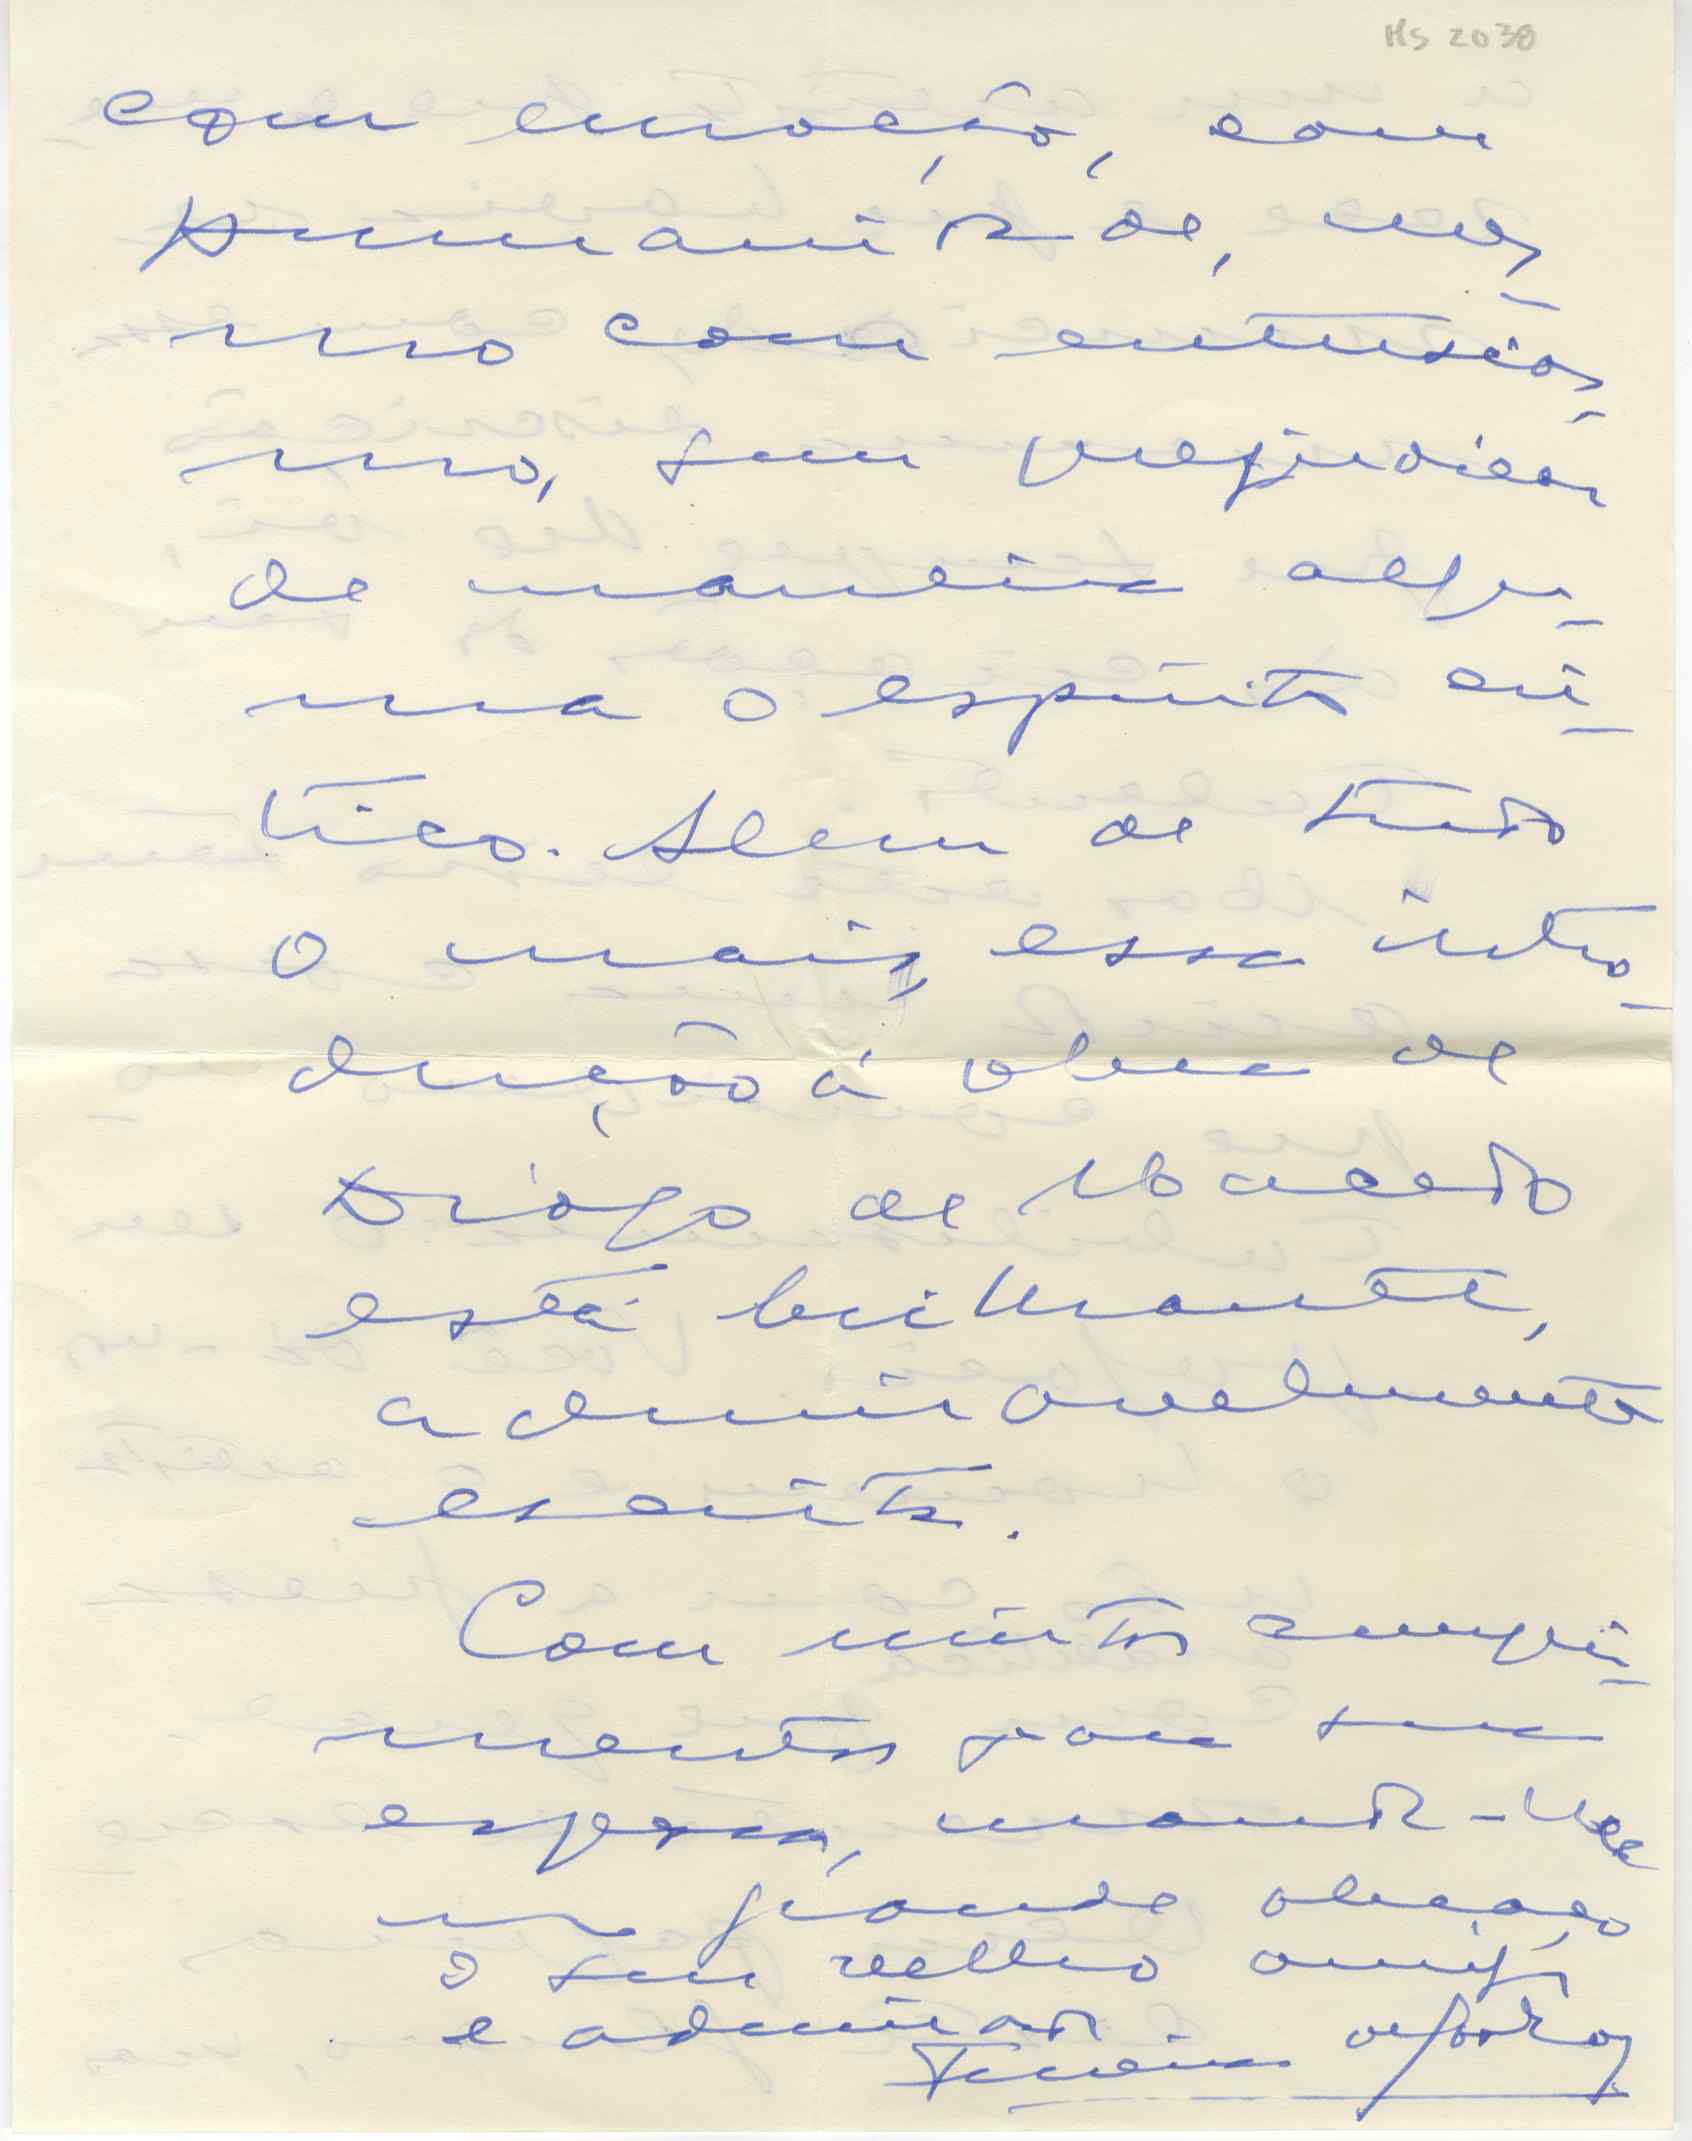 Ms 2038
com emoção, com
humanidade, mes-
mo com entusias-
mo, sem prejudicar
de maneira algu-
ma o espirito cri-
tico. Alem de tudo
o mais, essa intro-
dução á obra de
Diogo de Macedo
está brilhante,
admiravelmente
escrita.
Com muitos cumpri-
mentos para sua
esposa, manda-lhe
um grande abraço
o seu velho amigo
e admirador